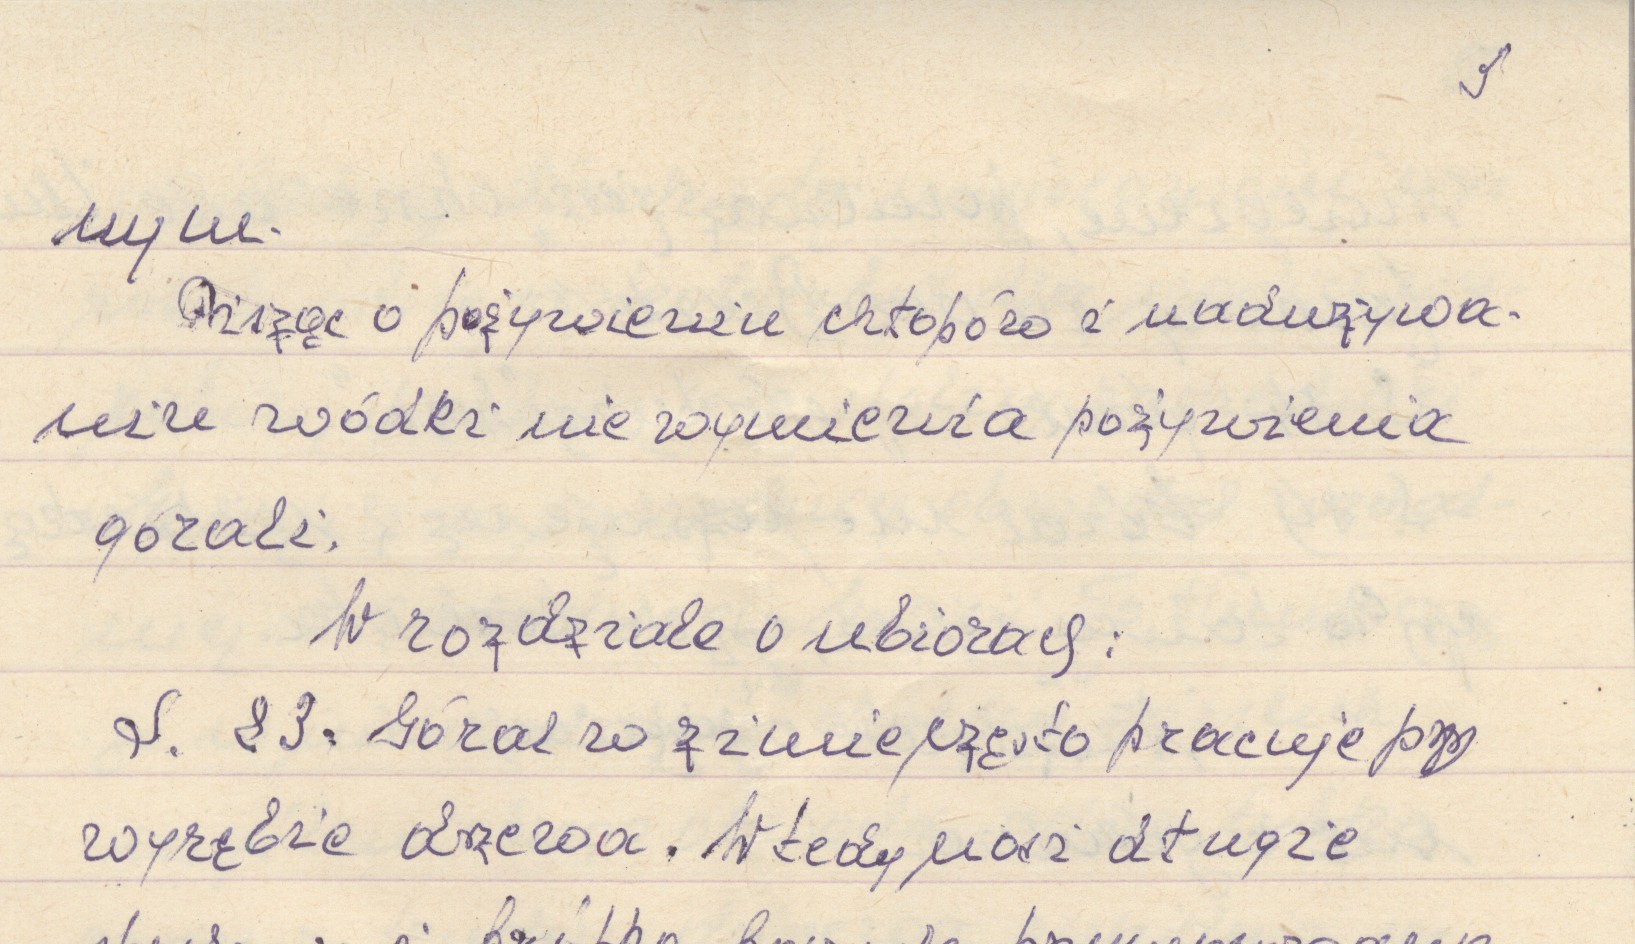 nym.
Pisząc o pożywieniu chłopów i nadużywa-
niu wódki nie wymienia pożywienia
górali.
W rozdziale o ubiorach:
S. 23. Góral w zimie często pracuje przy
wyrębie drzewa. Wtedy nosi długie